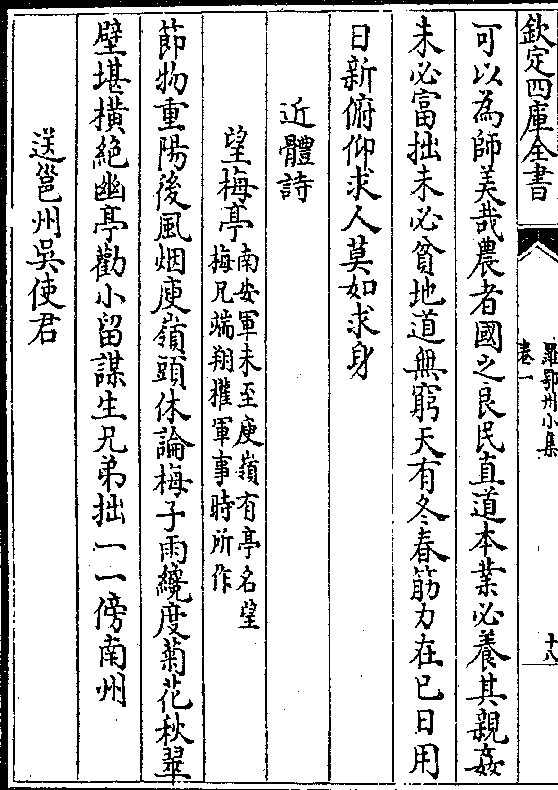 欽定四庫全書
羅鄂州小集
卷一
十八
可以為師美哉農者國之良民直道本業必養其親姦
未必富拙未必貧地道無窮天有冬春筋力在已日用
日新俯仰求人莫如求身
近體詩
望梅亭南安軍未至庾嶺有亭名望
梅兄端翔攉軍事時所作
節物重陽後風烟庾嶺頭休論梅子雨纔度菊花秋翠
壁堪橫絶幽亭勸小留謀生兄弟拙一一傍南州
送邕州吳使君